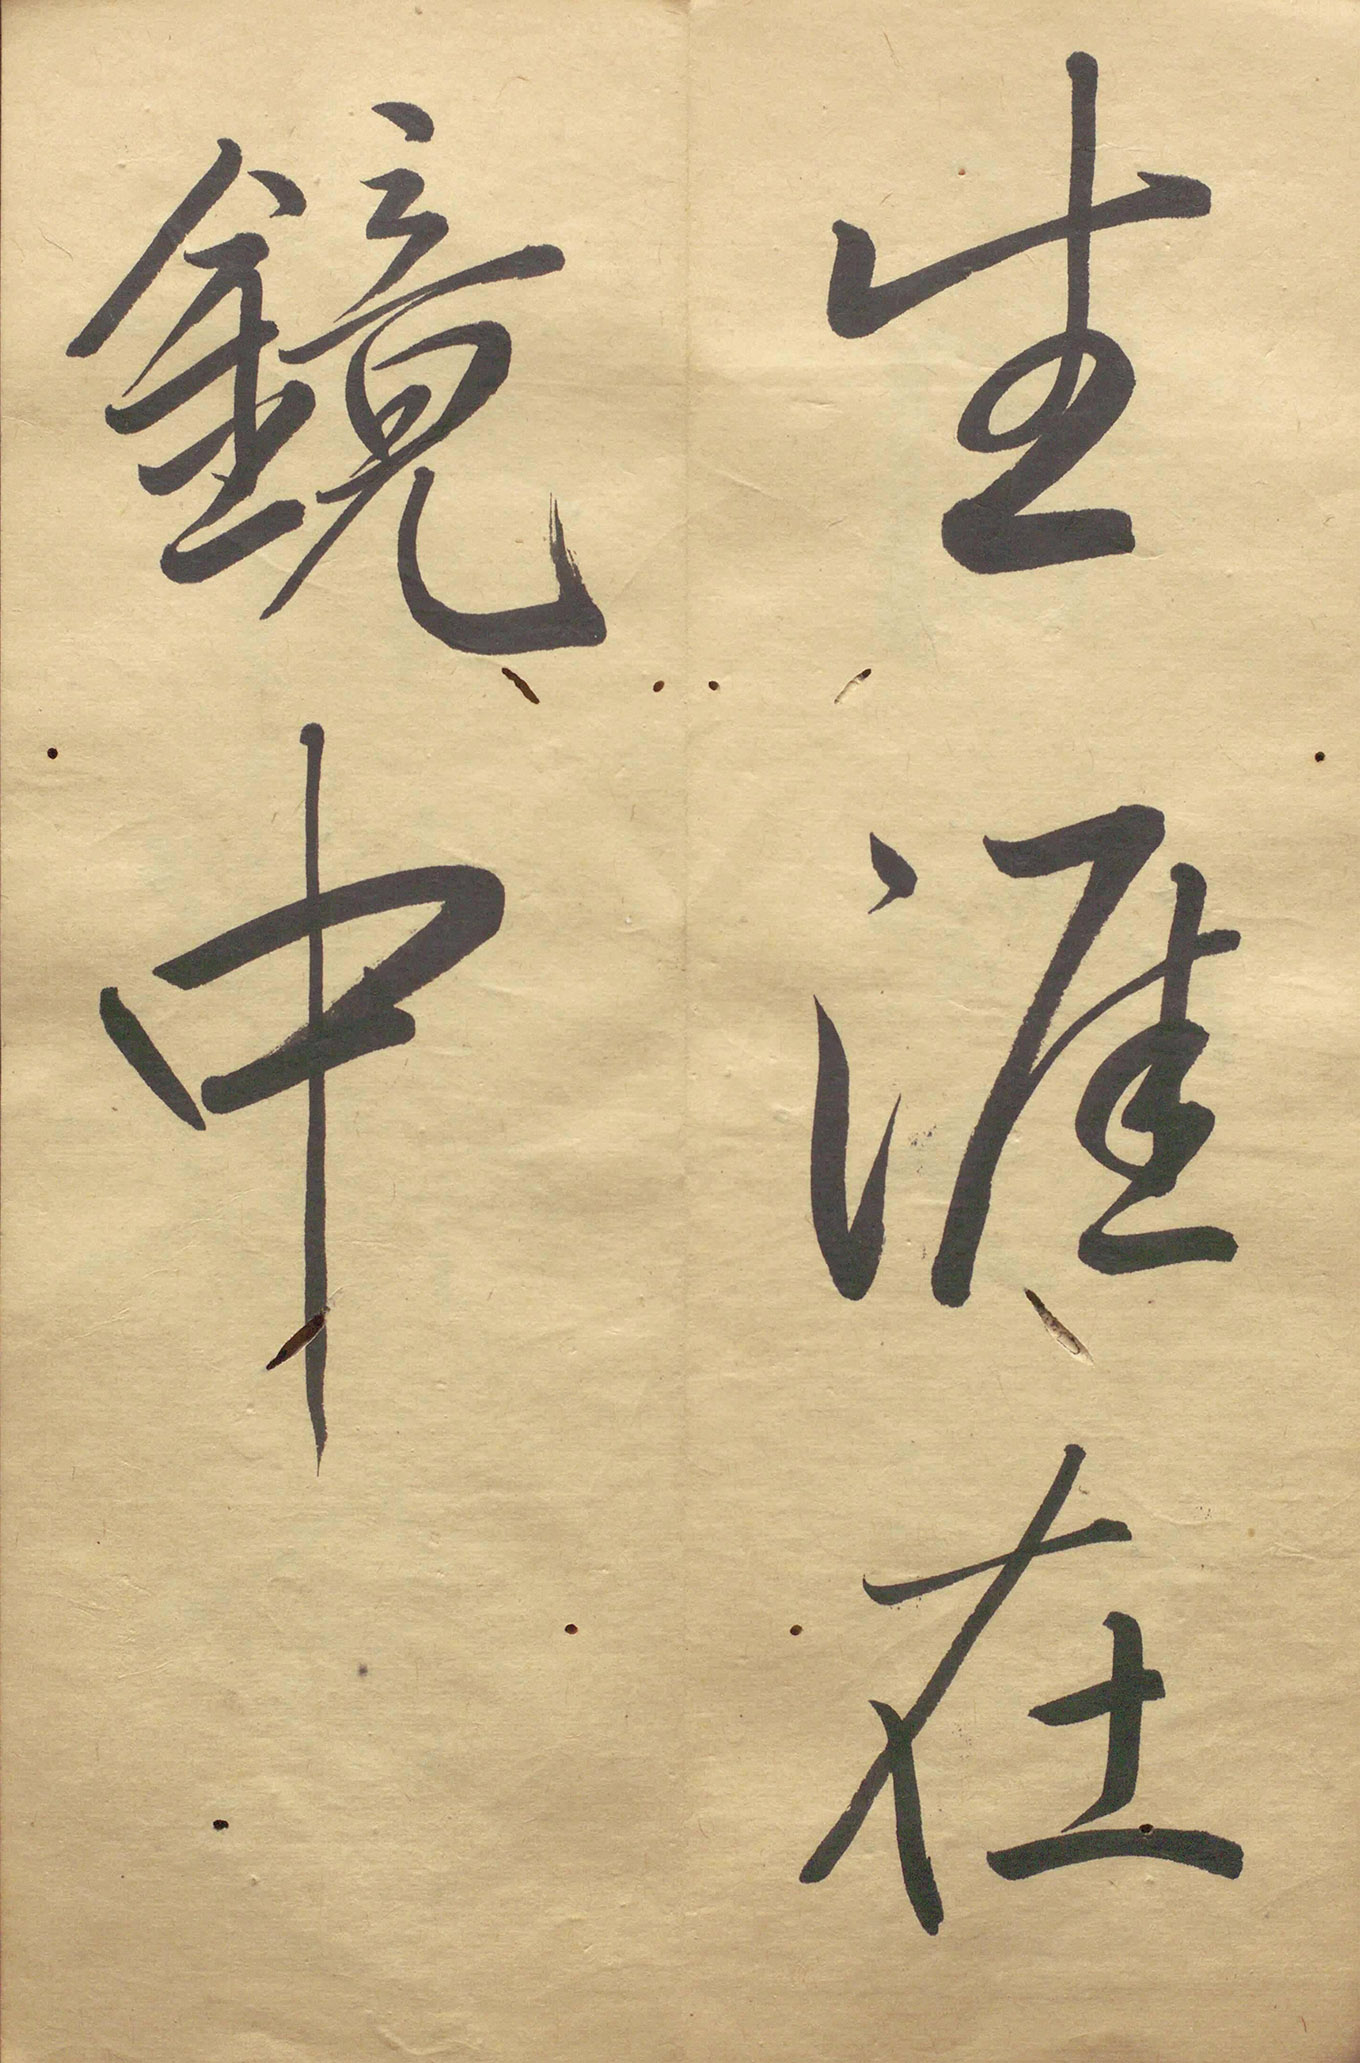 生涯在
鏡中